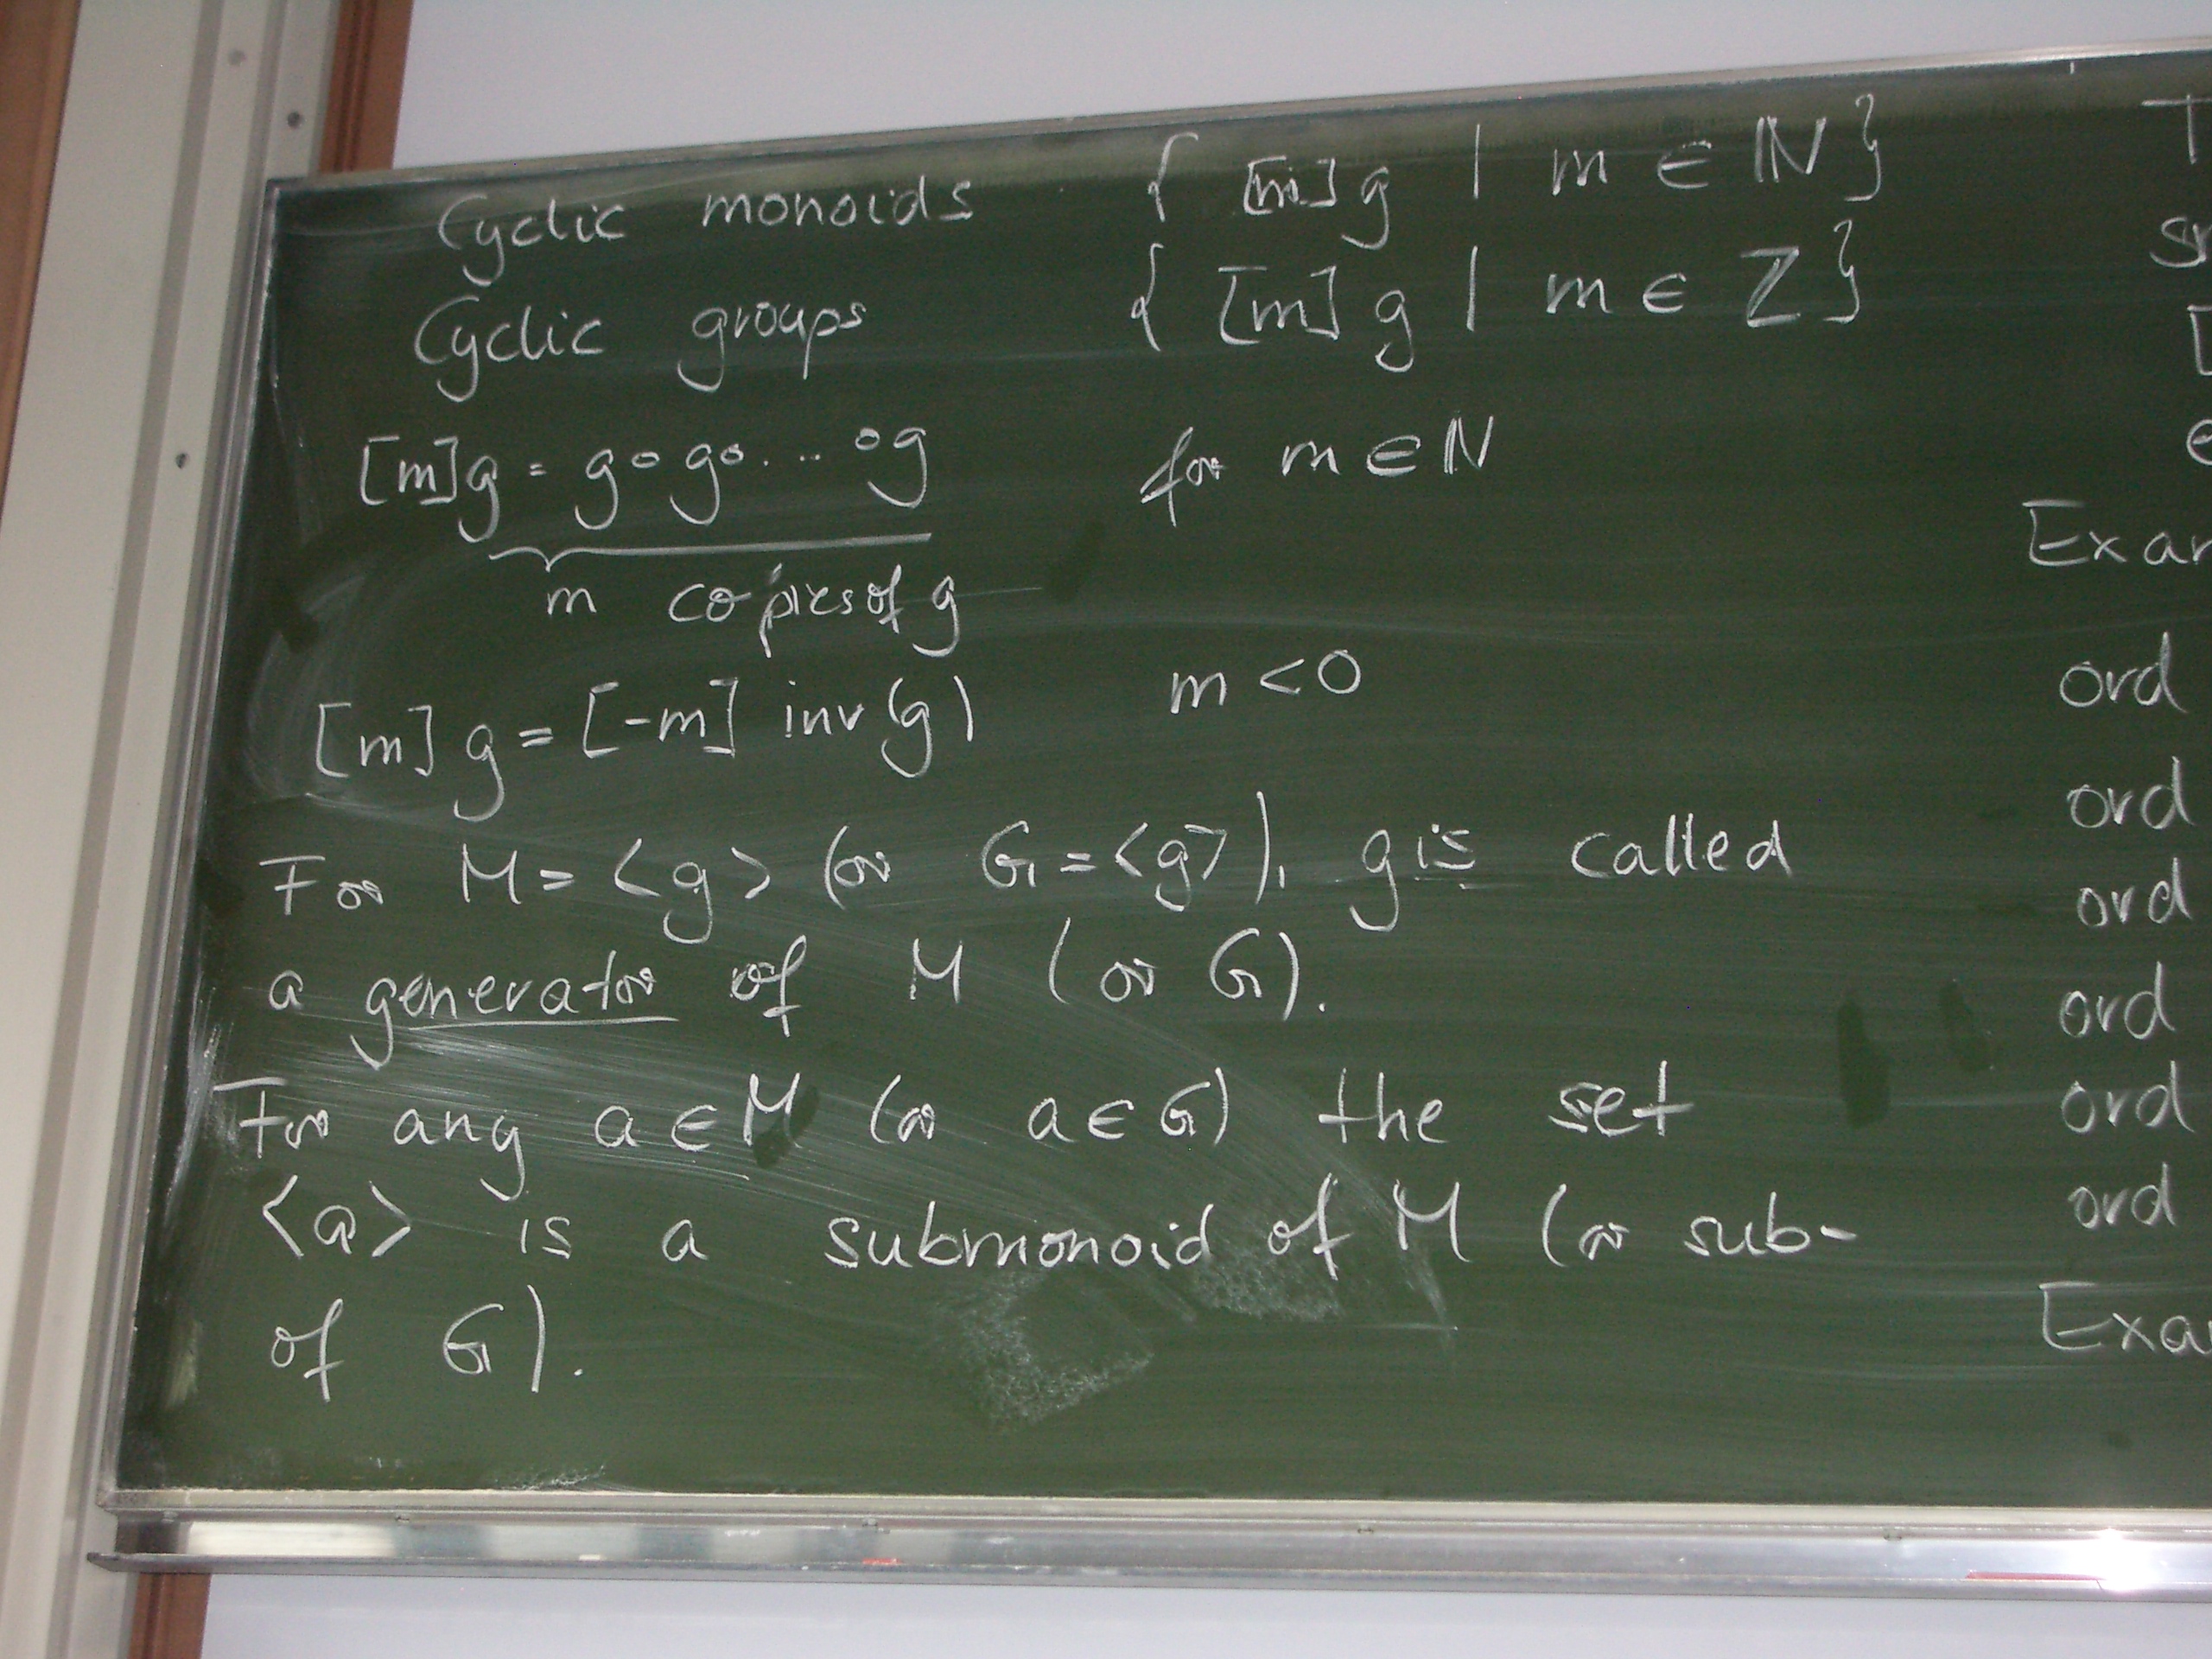 Cyclic monoids { [m]g | m ∈ ℕ}
Cyclic groups { [m] g | m ∈ ℤ}
[m]g = g∘g∘. ... ∘g for m ∈ ℕ
m copies of g
[m] g = [-m] inv(g) m < 0
For M = <g> (or G = <g>), g is called
a generator of M (or G).
For any a ∈ M (or a ∈ G) the set
<a> is a submonoid of M (or sub-
of G).
Exa
ord
ord
ord
ord
ord
ord
Exa